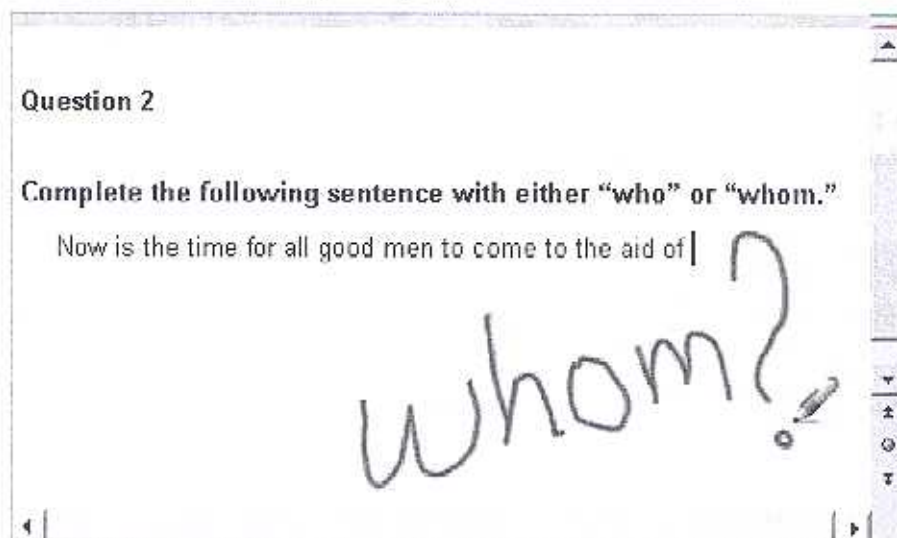 Question 2
Complete the following sentence with either “who” or “whom.”
Now is the time for all good men to come to the aid of
whom?